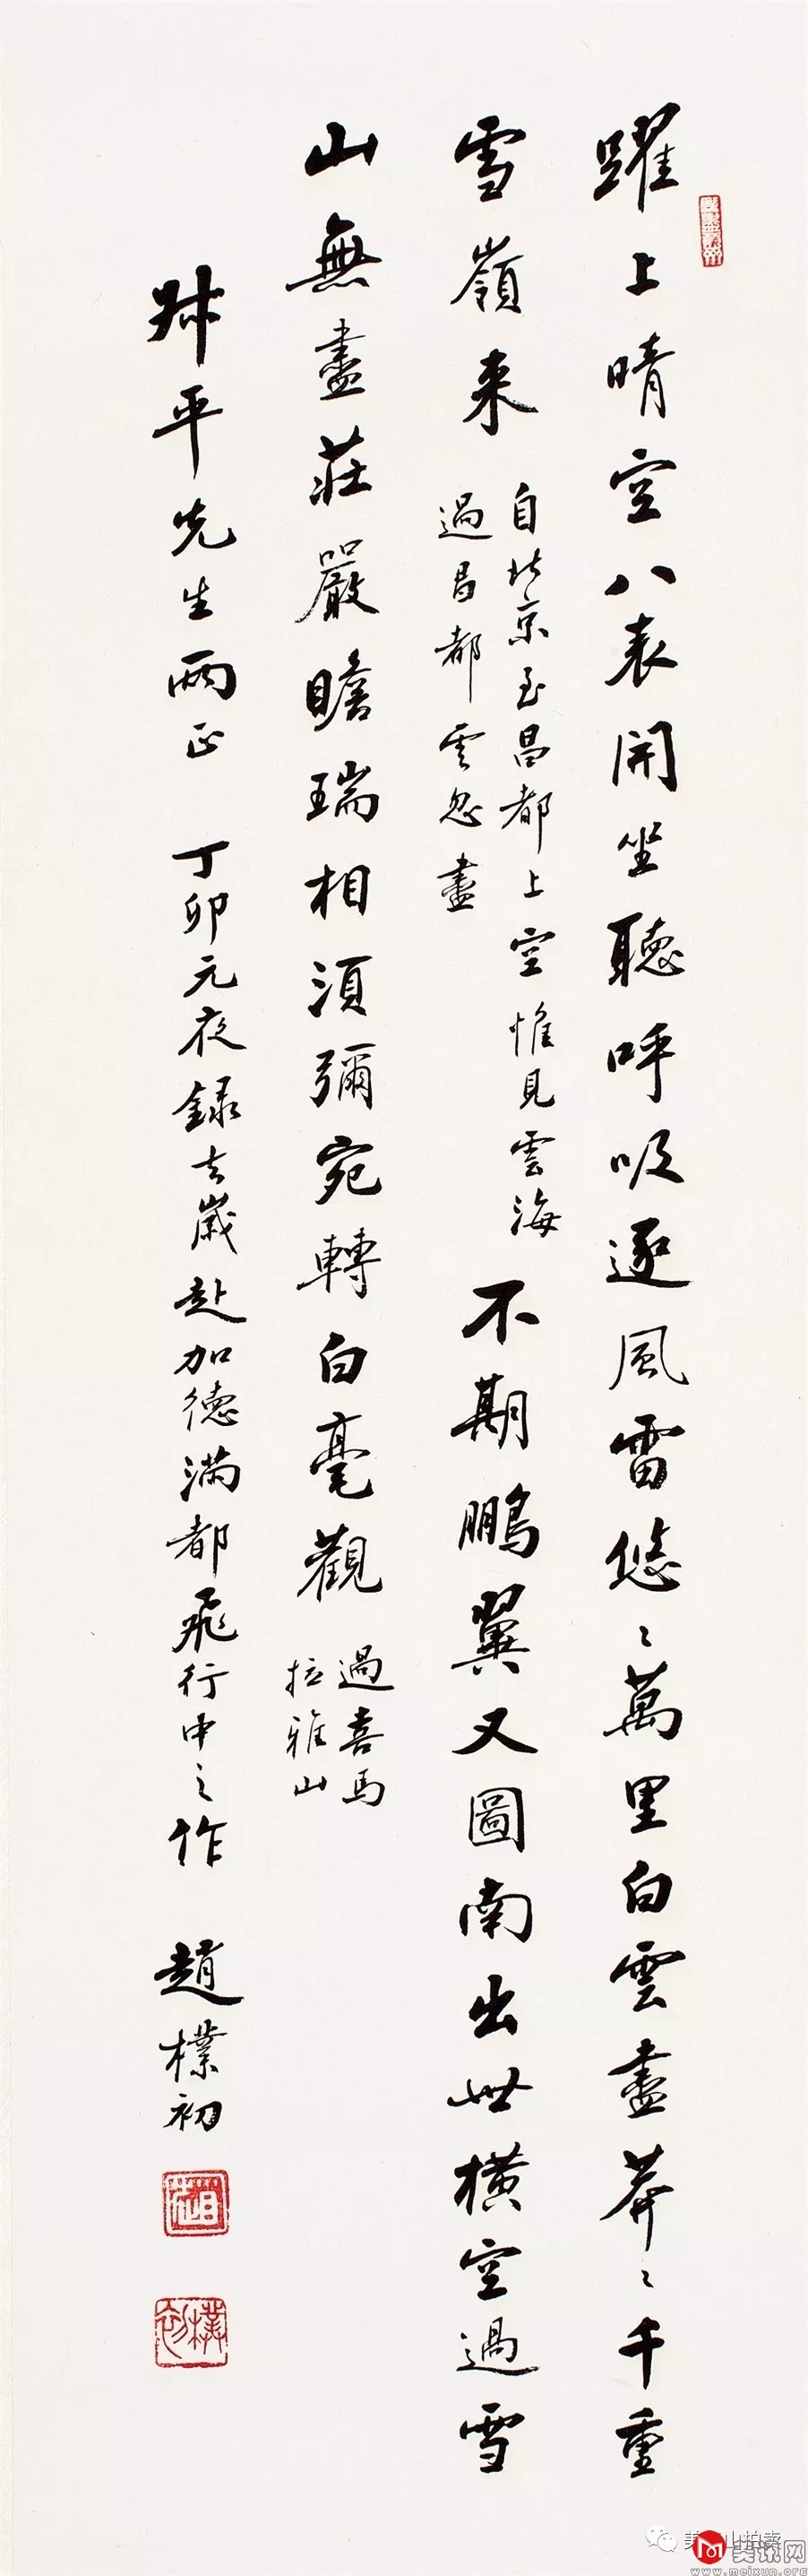 躍上晴空八表開坐聽呼吸逐風雷悠〻萬里白雲盡莽〻千重
雪嶺来
自北京至昌都上空惟見雲海
過昌都雲忽盡
不期鵬翼又圖南出世橫空過雪
山無盡莊嚴瞻瑞相須彌宛轉白毫觀
過喜馬
拉雅山
叔平先生兩正 丁卯元夜録去歲赴加德滿都飛行中之作 趙樸初
趙
樸初
美讯网
www.meixun.org